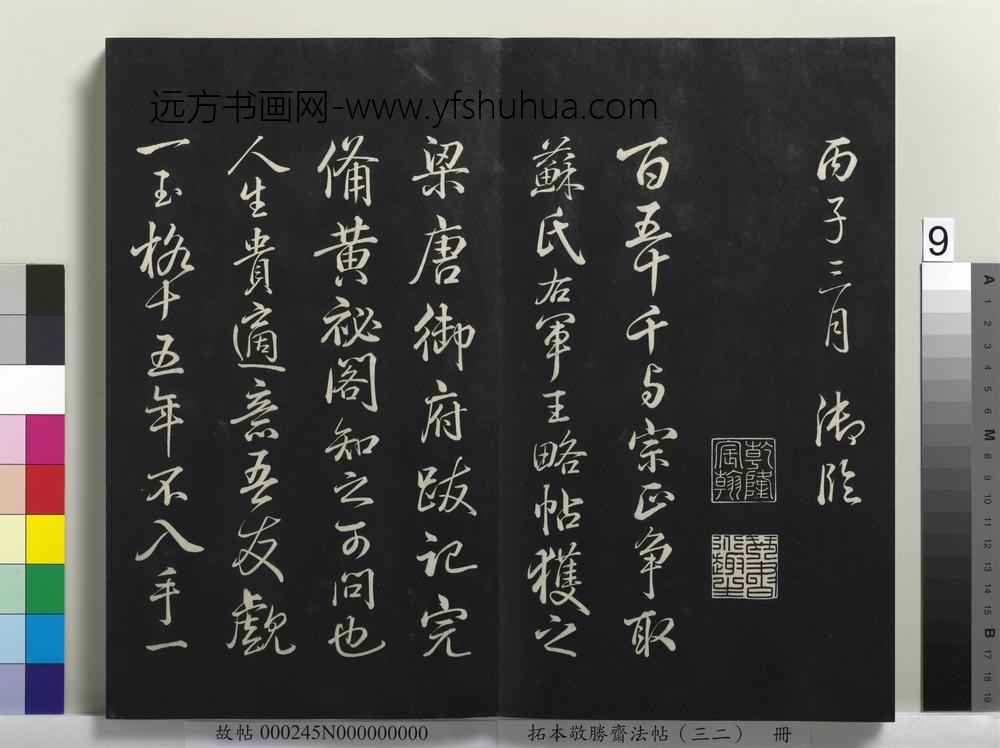 远方书画网-www.yfshuhua.com
丙子三月 御臨
乾隆宸翰
百五十千与宗正争取
蘇氏右軍王略帖獲之
梁唐御府跋記完
備黃祕閣知之可問也
人生貴適意吾友覷
一玉格十五年不入手一
9
A 1 2 3 4 5 6 M 8 9 10 11 12 13 14 15 B 17 18 19
故帖 000245N000000000
拓本敬勝齋法帖（三二） 冊